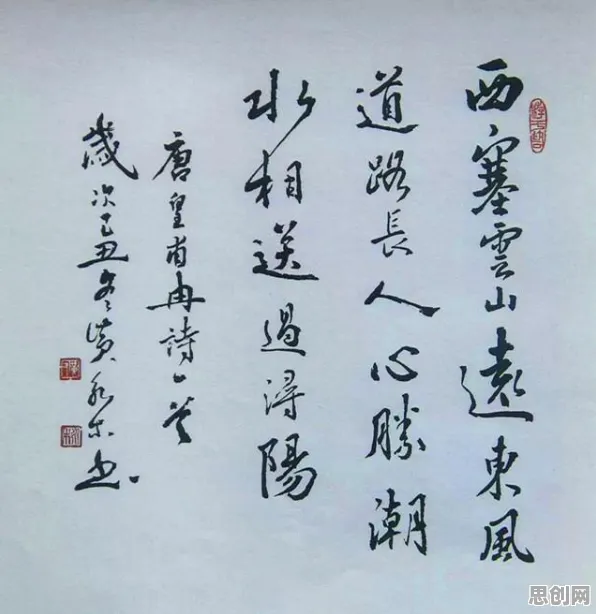 西塞雲山遠東風
道路長人心勝潮
水相送過潯陽
唐皇甫冉詩一首
歲次乙丑冬黄永
书
思创网